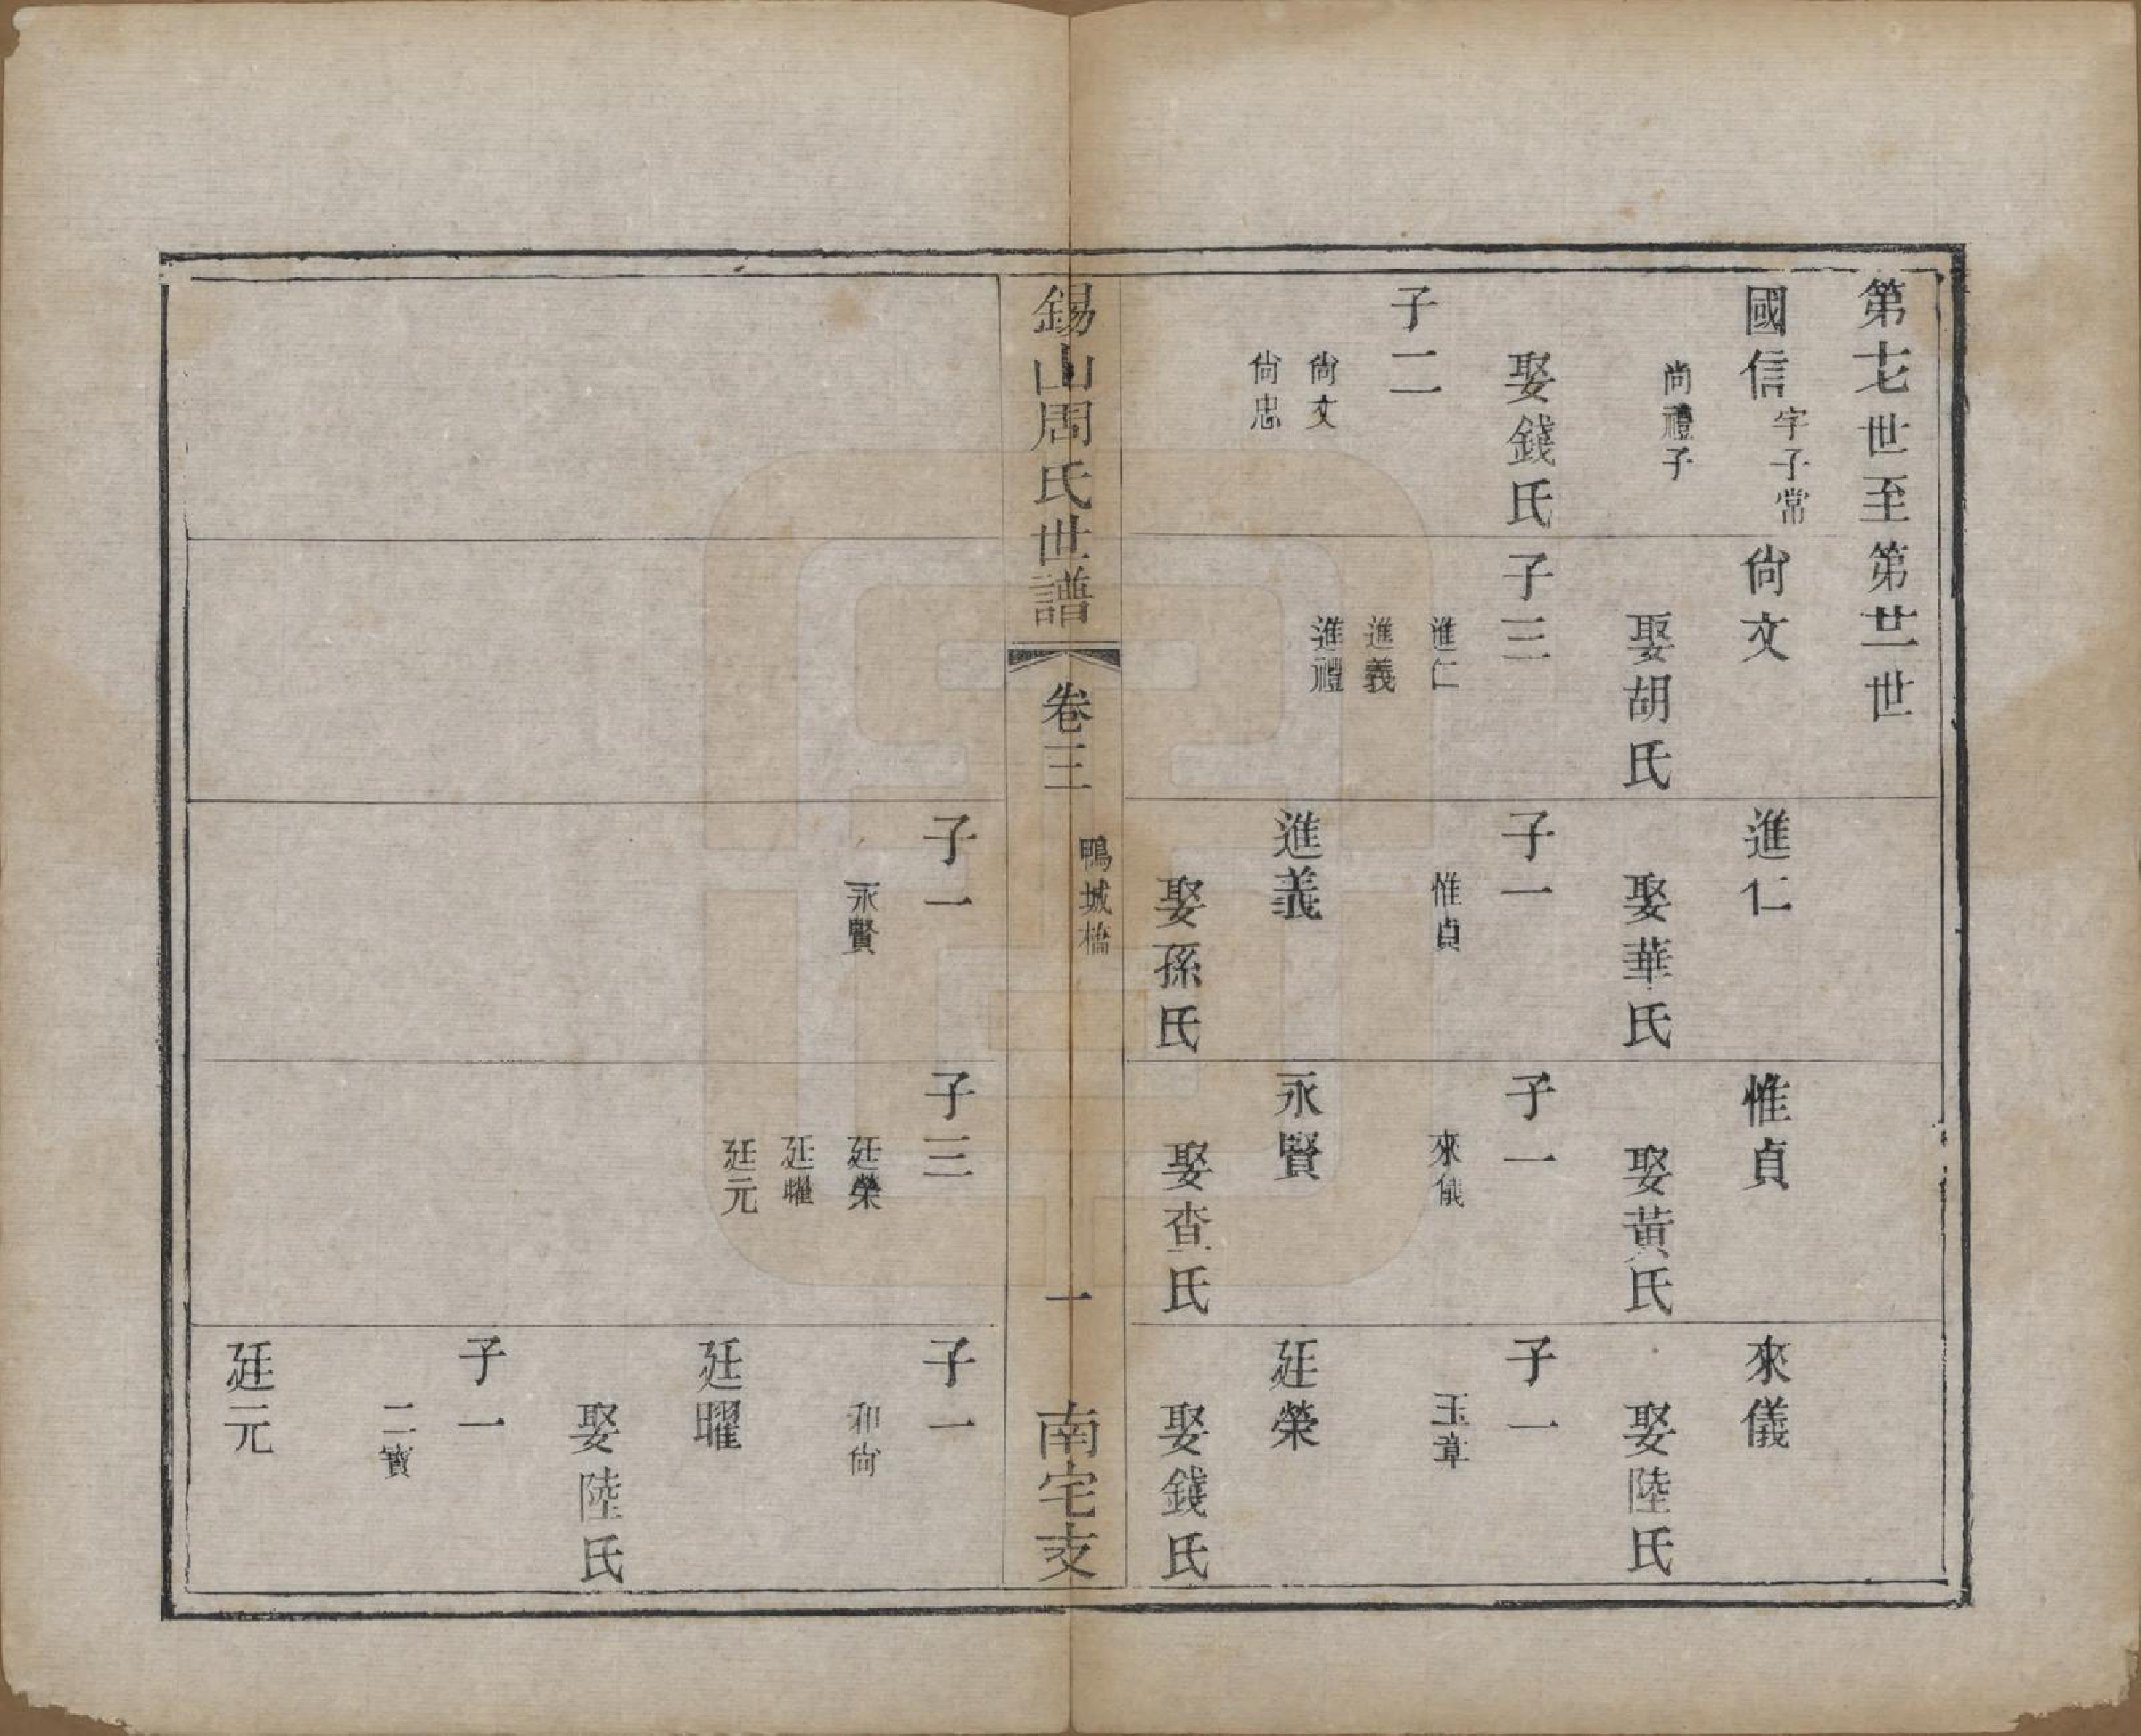 第十七世至第廿一世
國信字子常
尚禮子
娶錢氏
子二
尙文
尙忠
尙文
娶胡氏
子三
進仁
進義
進禮
進仁
娶華氏
子一
惟貞
進義
娶孫氏
惟貞
娶黃氏
子一
來儀
永賢
娶查氏
來儀
娶陸氏
子一
玉章
廷榮
娶錢氏
錫山周氏世譜
卷三
鴨城橋
一
南宅支
子一
永賢
子三
廷榮
廷曜
廷元
子一
和尙
廷曜
娶陸氏
子一
二寶
廷元